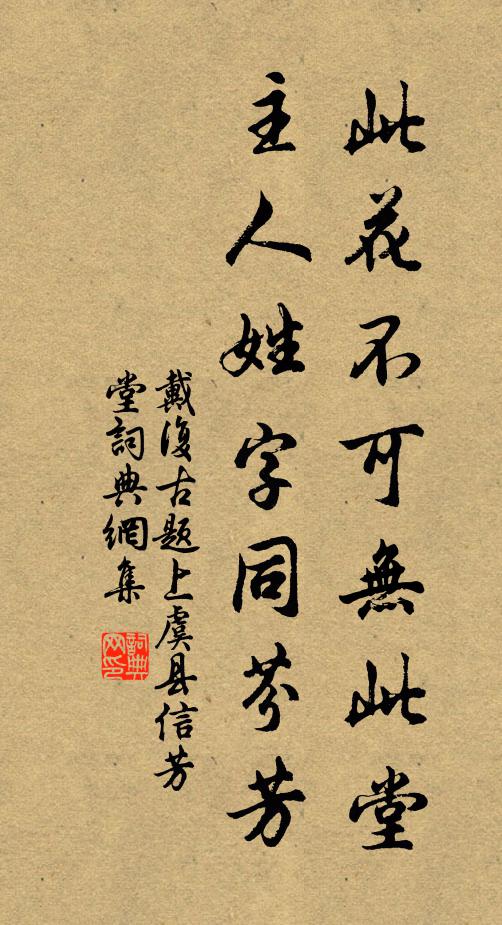 此花不可無此堂
主人姓字同芬芳
戴復古題上虞县信芳
堂詞典網集
詞典网印